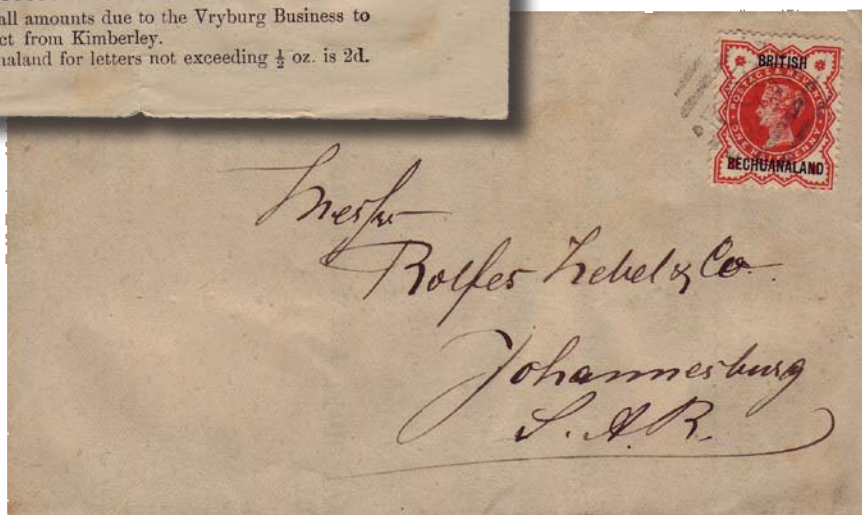 all amounts due to the Vryburg Business to
ct from Kimberley.
naland for letters not exceeding ½ oz. is 2d.
BRITISH
POSTAGE & REVENUE
ONE HALFPENNY
BECHUANALAND
Messrs
Rolfes Nebel & Co
Johannesburg
S. A. R.